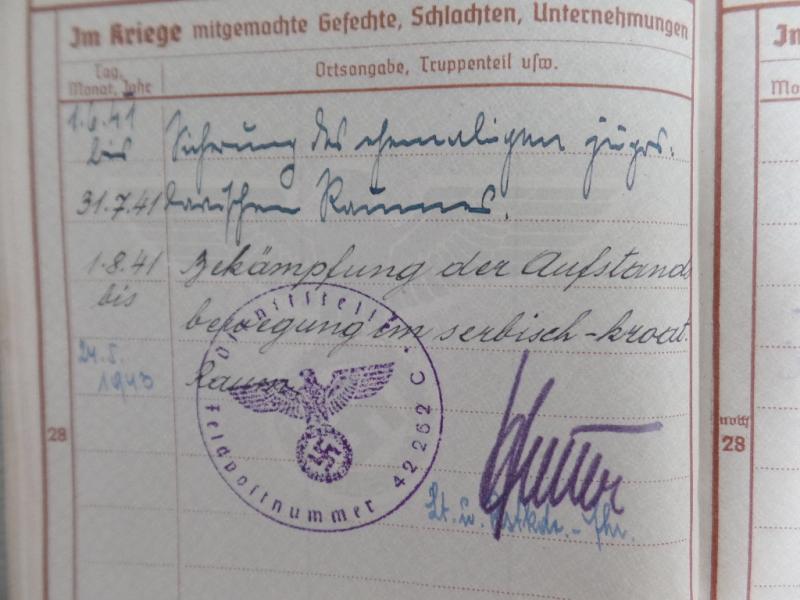 Im Kriege mitgemachte Gefechte, Schlachten, Unternehmungen
Tag, Monat, Jahr
Ortsangabe, Truppenteil usw.
1.6.41 Sicherung des ehemaligen jugos-
bis
31.7.41 lawischen Raumes.
1.8.41 Bekämpfung der Aufstands
bis bewegung im serbisch-kroat.
24.5. Raum
1943
Dienststelle
Feldpostnummer 42262 C
Lt. u.
28
Im
Mo
noch
28